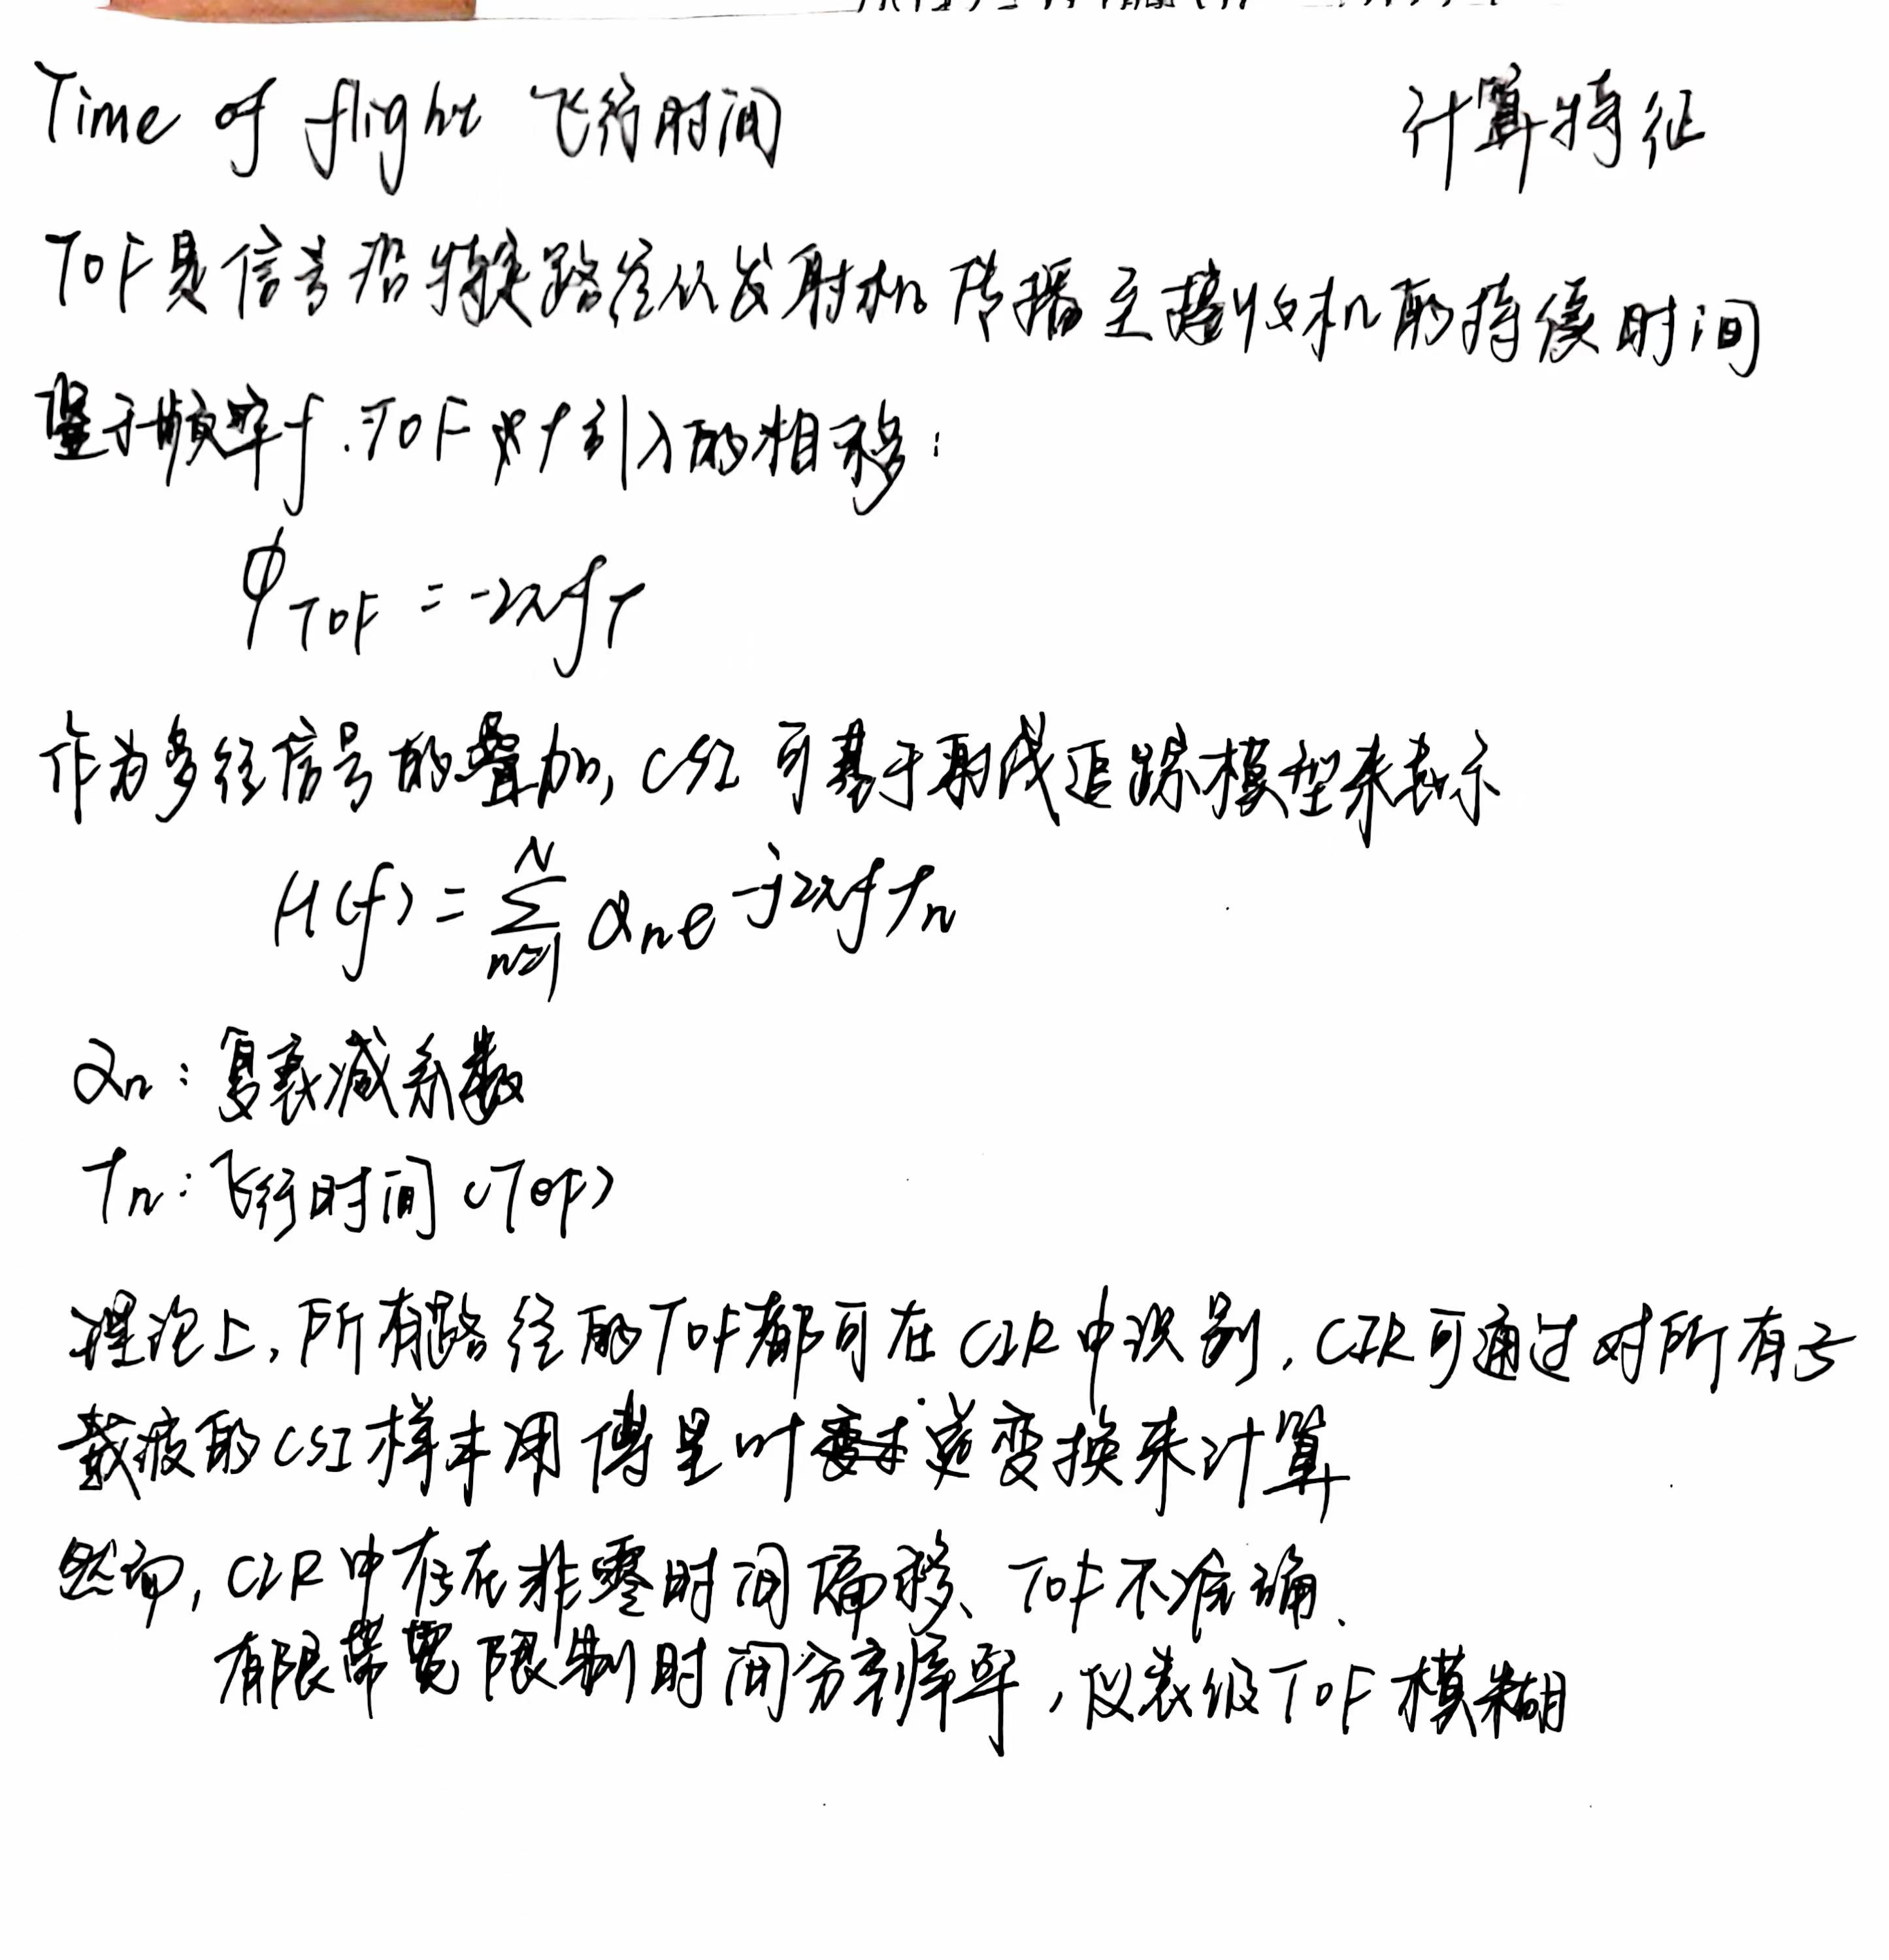 Time of flight 飞行时间 计算特征
TOF是信号沿特定路径从发射机传播至接收机的持续时间
鉴于频率f.TOF对f引入的相移:
φTOF = -2πfτ
作为多径信号的叠加, CSI 可基于射线追踪模型来表示
H(f) = ∑ᴺₙ₌₁ αₙe^-j2πfτₙ
αₙ:复衰减系数
τₙ:飞行时间(TOF)
理论上,所有路径的TOF都可在CIR中识别.CIR可通过对所有子
载波的CSI样本用傅里叶逆变换来计算
然而, CIR中存在非零时间偏移、TOF不准确.
有限带宽限制时间分辨率,仪表级TOF模糊